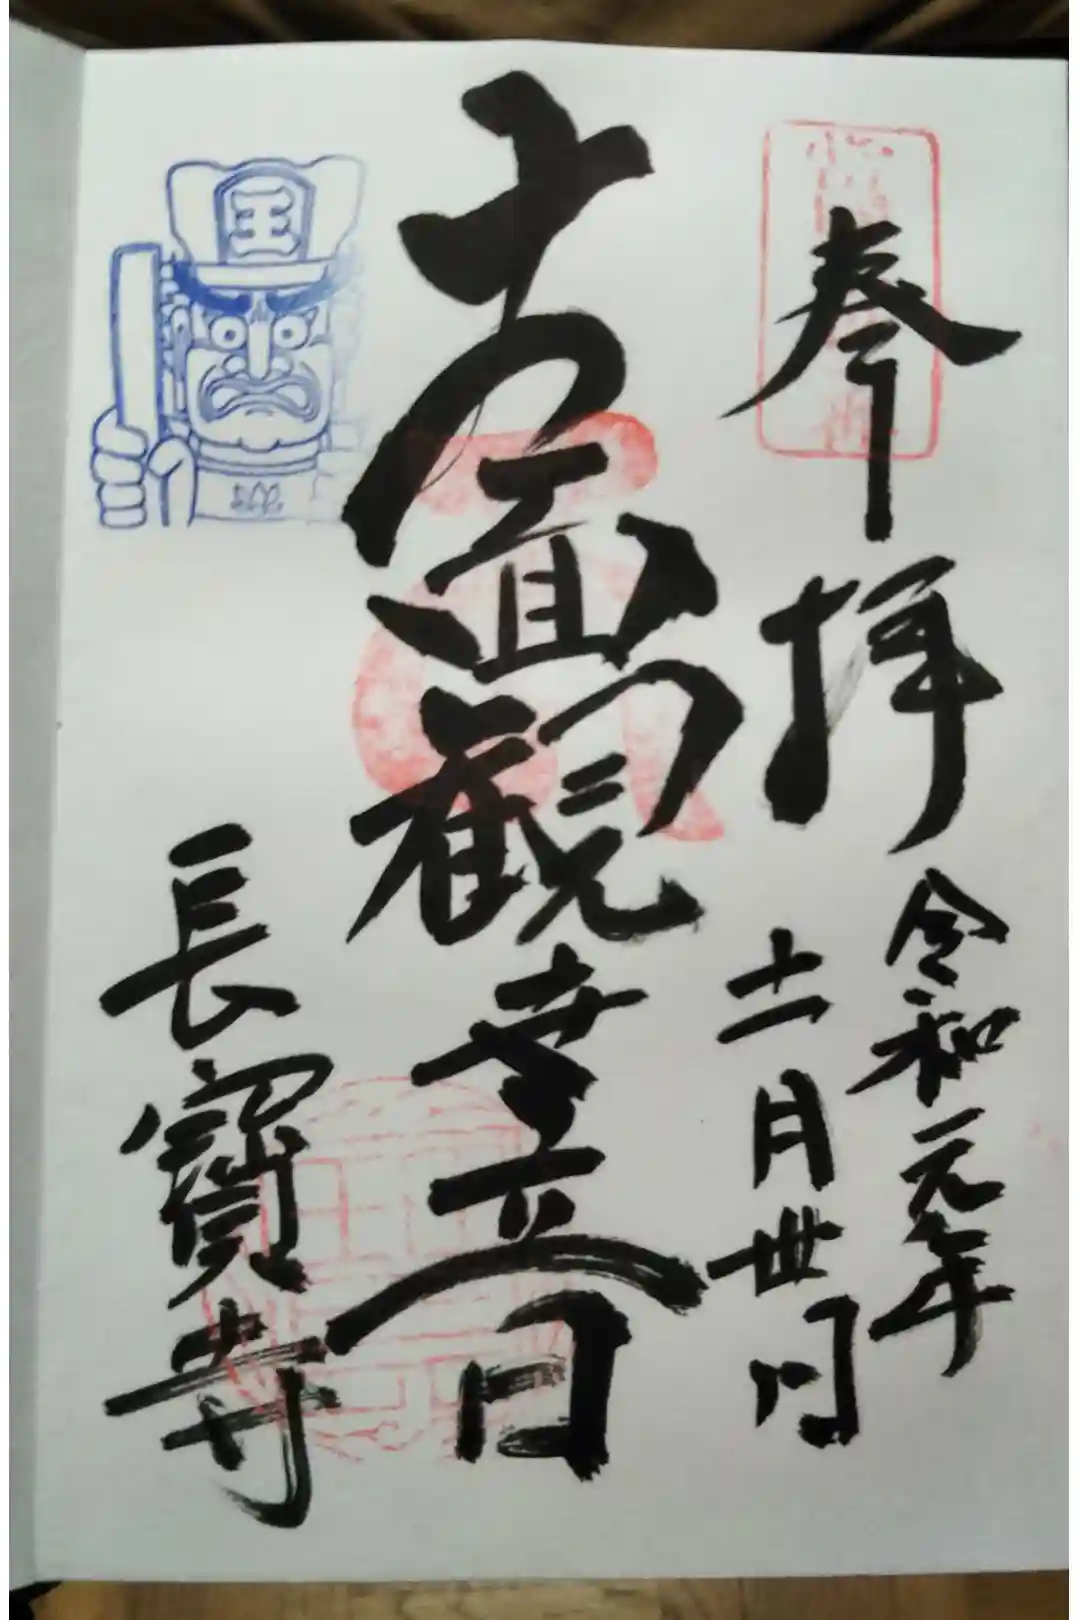 奉拝
令和元年
十一月丗日
十一面観世音
長寳寺
王